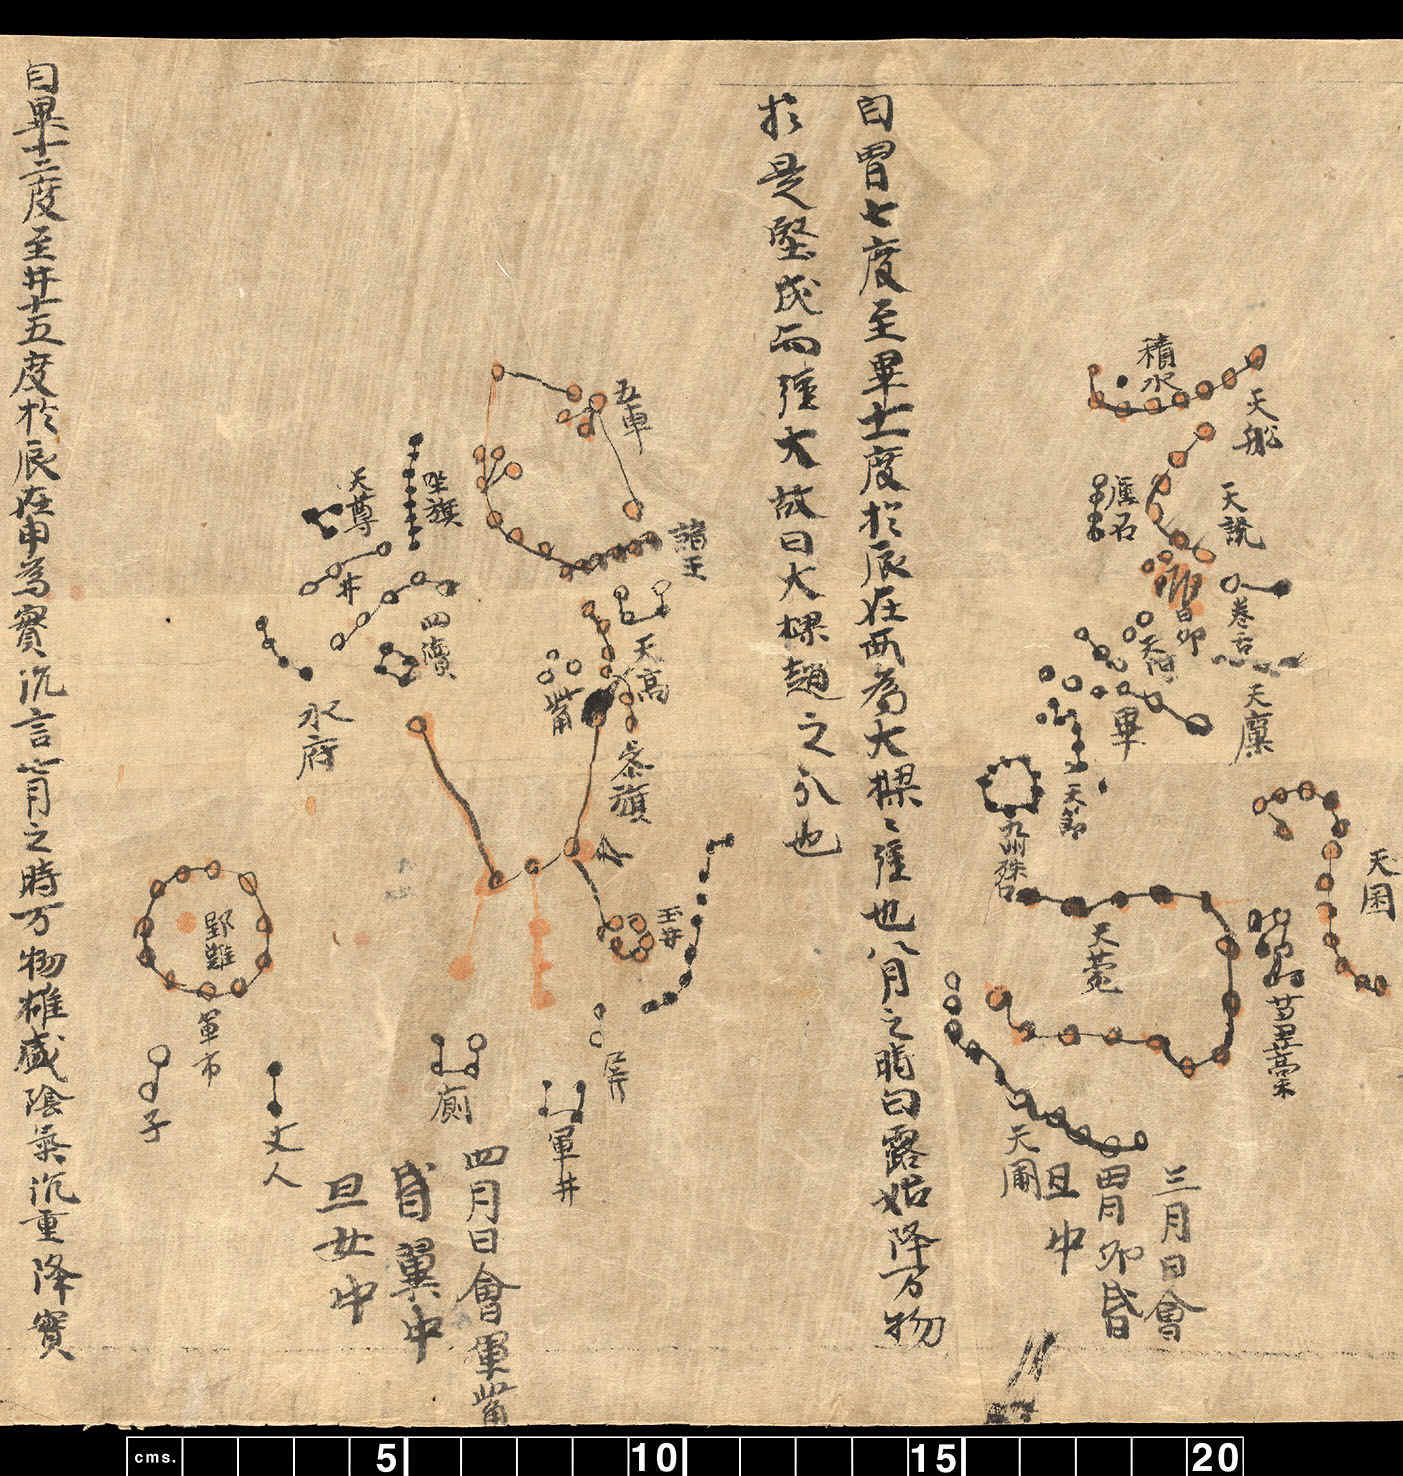 天船
積水
天讒
卷舌
礪石
昴
天河
天廩
畢
天節
天囷
九州殊口
天菀
芻藁
天園
三月日會
胃昴昏
旦中
自胃七度至畢十一度於辰在酉為大樑樑強也八月之時白露始降万物
於是堅成而強大故曰大樑趙之分也
五車
諸王
天高
坐旗
天尊
井
四瀆
觜
參旗
水府
玉井
野雞
軍市
屏
廁
軍井
子
丈人
四月日會
觜
昏翼中
旦女中
自畢十二度至井十五度於辰在申為實沉言七月之時万物雄盛陰氣沉重降實